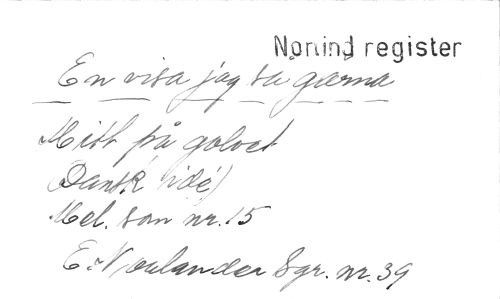 Norlind register
En visa jag så gärna
Mitt på golvet
(Dansk idé)
Mel. som nr. 15
E. Norlander Sgr. nr. 39